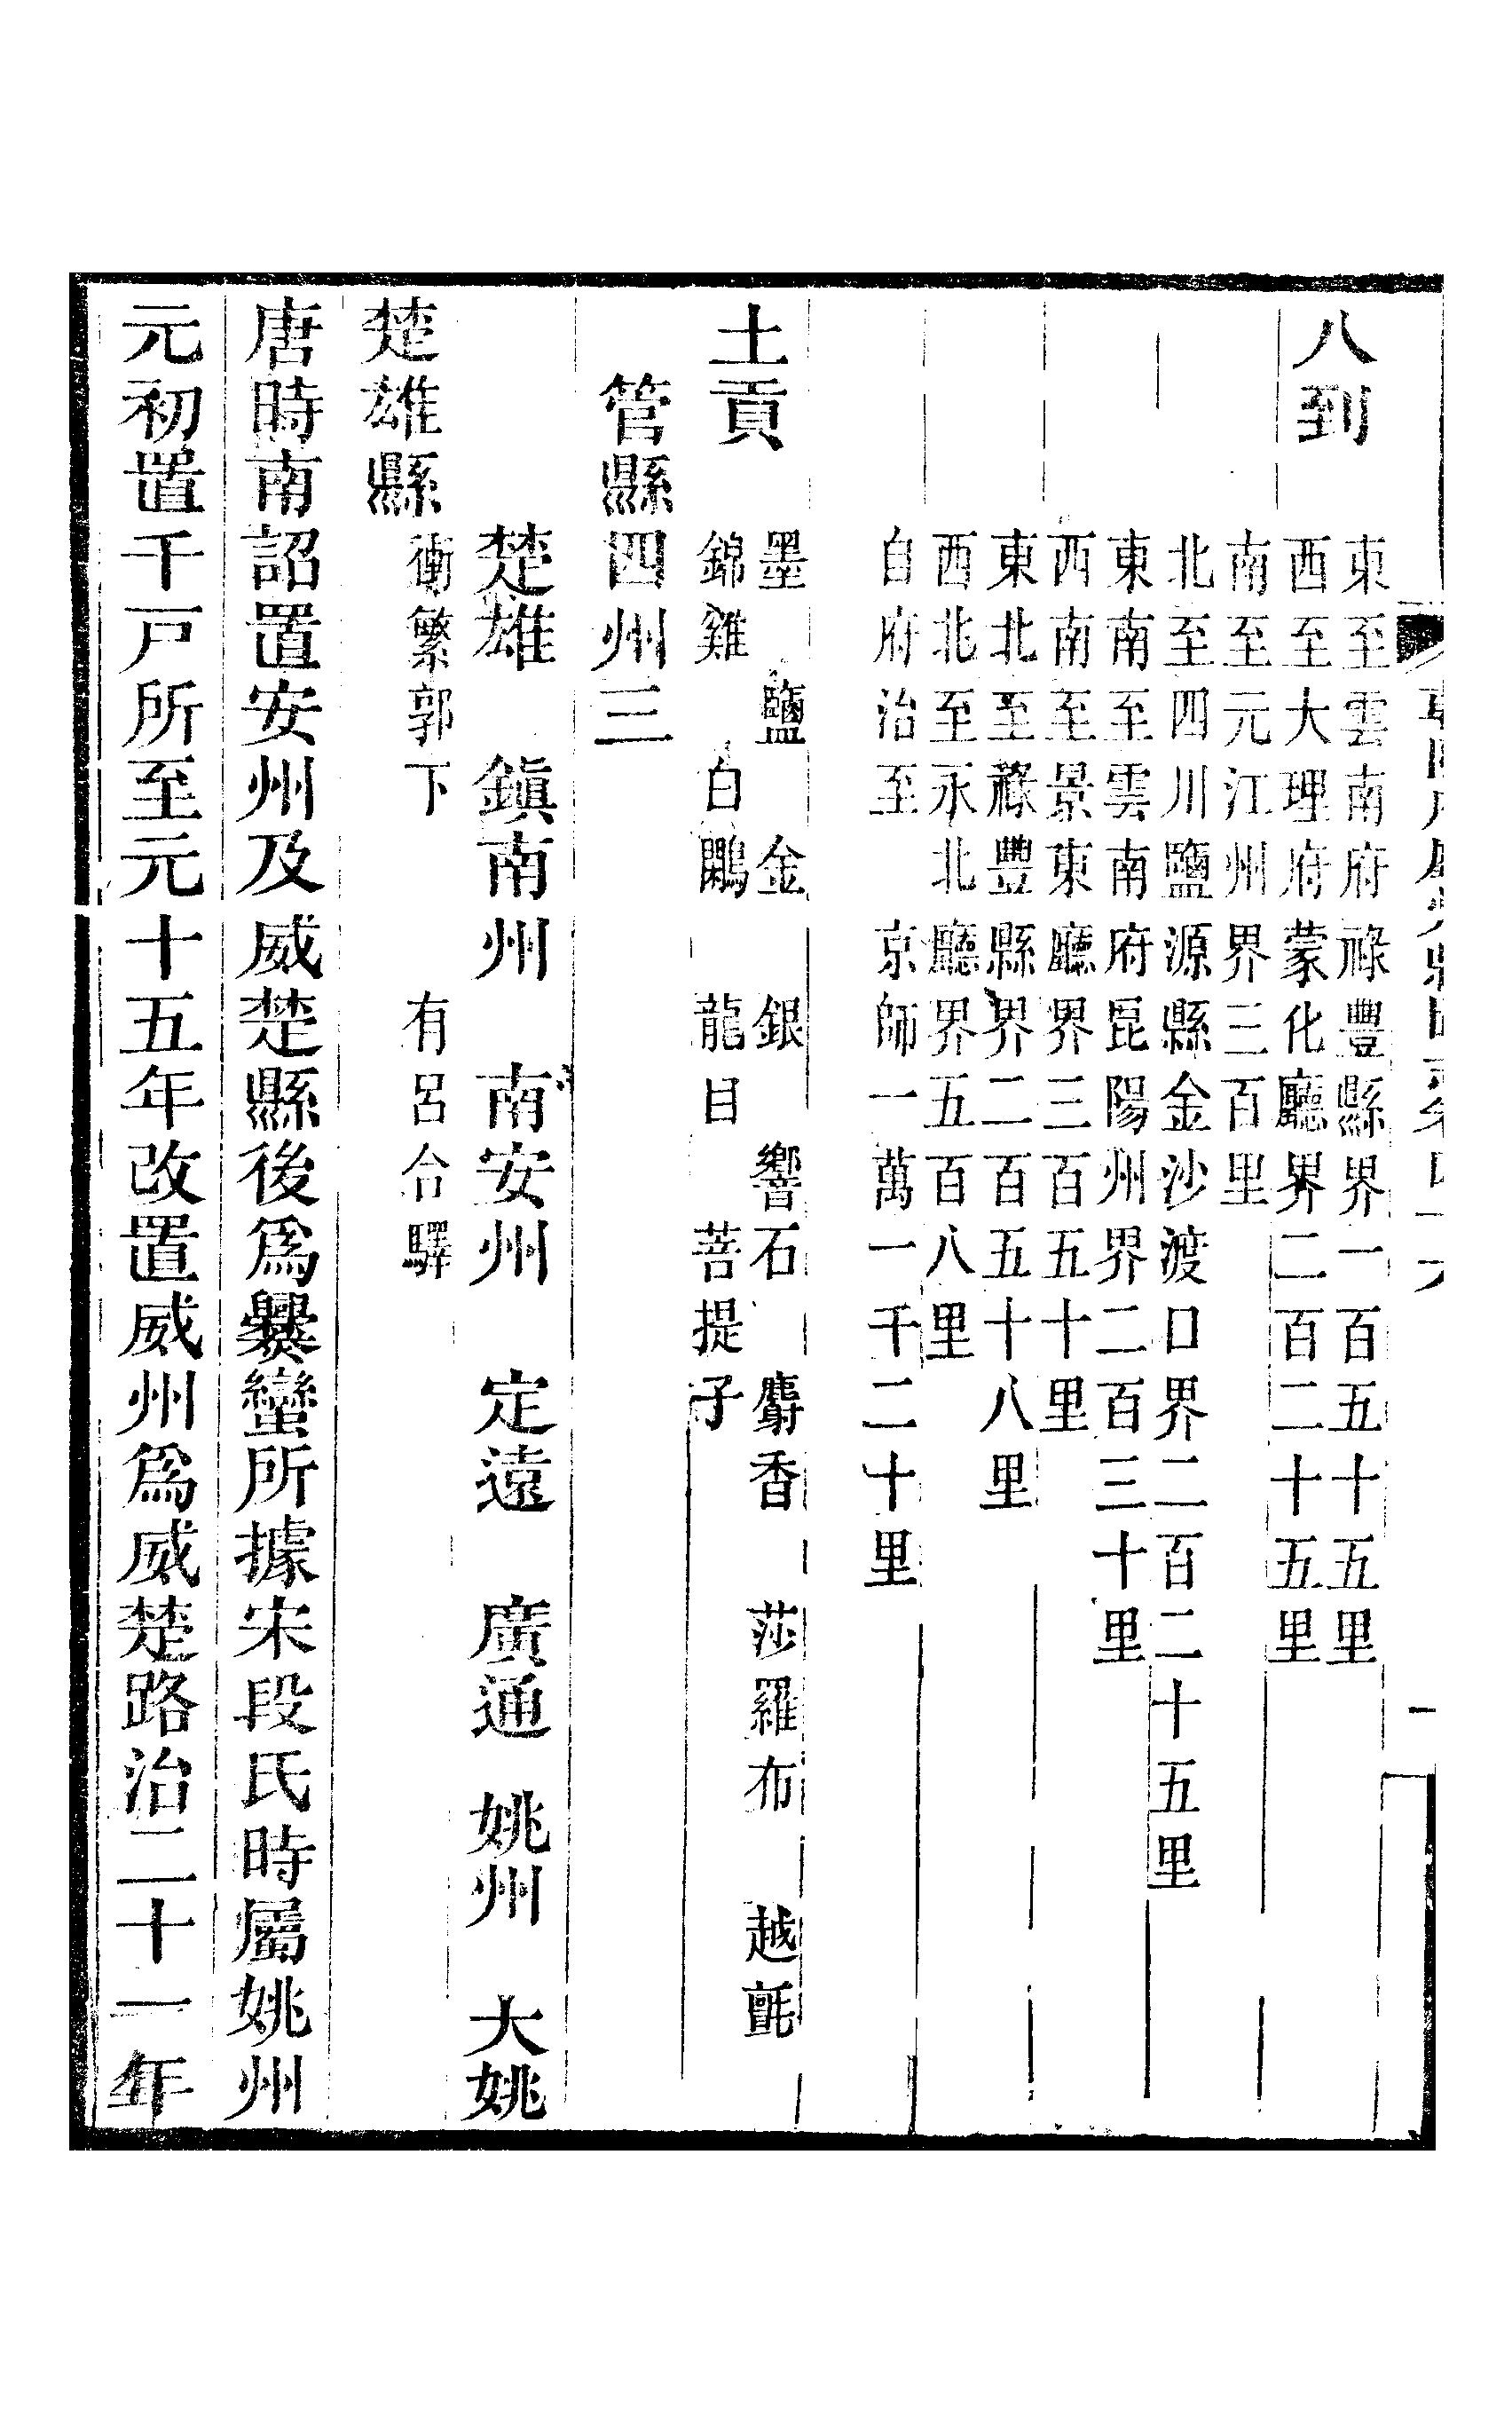 八到
東至雲南府祿豐縣界一百五十五里
西至大理府蒙化廳界二百二十五里
南至元江州界三百里
北至四川鹽源縣金沙渡口界二百二十五里
東南至雲南府昆陽州界二百三十里
西南至景東廳界三百五十里
東北至祿豐縣界二百五十八里
西北至永北廳界五百八里
自府治至 京師一萬一千二十里
土貢
墨 鹽 金 銀 響石 麝香 莎羅布 越氈
錦雞 白鷴 龍目 菩提子
管縣四州三
楚雄 鎮南州 南安州 定遠 廣通 姚州 大姚
楚雄縣 衝繁郭下 有呂合驛
唐時南詔置安州及威楚縣後爲爨蠻所據宋段氏時屬姚州
元初置千戸所至元十五年改置威州爲威楚路治二十一年